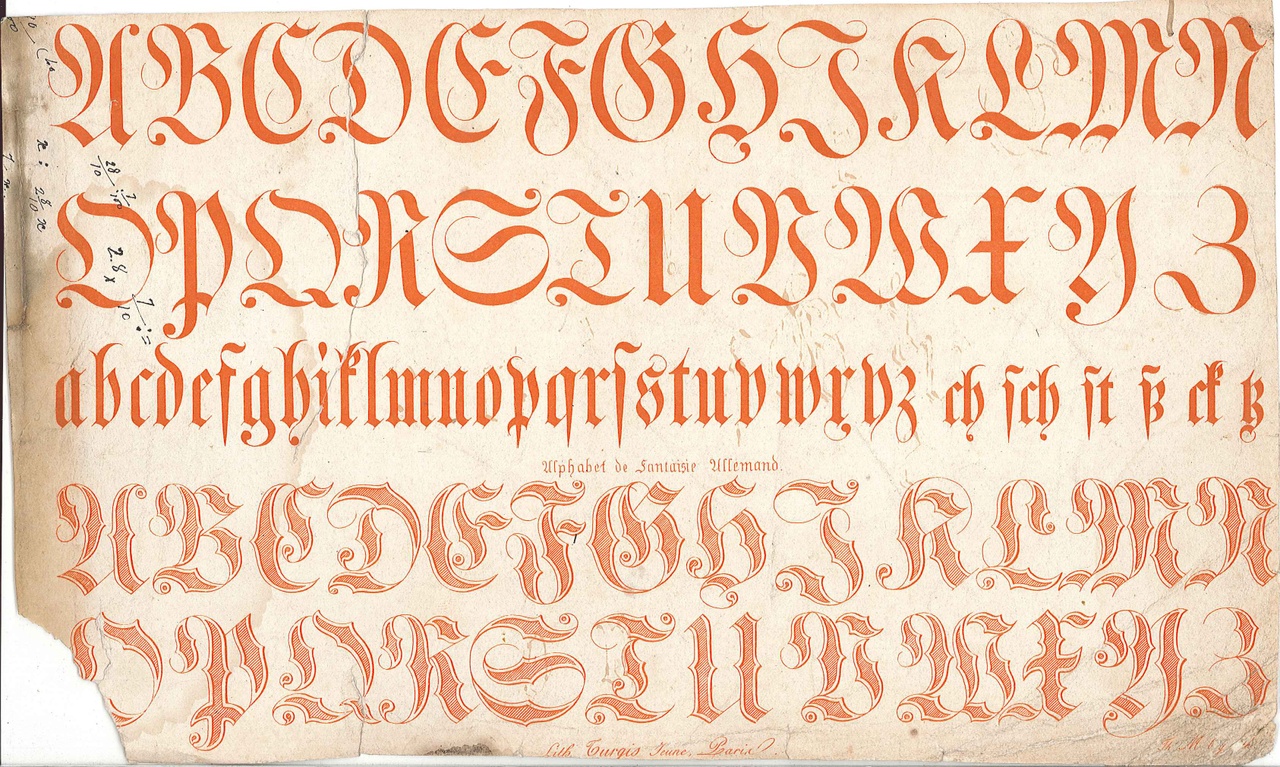 A B C D E F G H J K L M N
O P Q R S T U V W X Y Z
a b c d e f g h i k l m n o p q r ſ s t u v w x y z ch ſch ſt ß ck tz
Alphabet de Fantaisie Allemand.
A B C D E F G H J K L M N
O P Q R S T U V W X Y Z
Lith. Turgis Jeune, Paris.